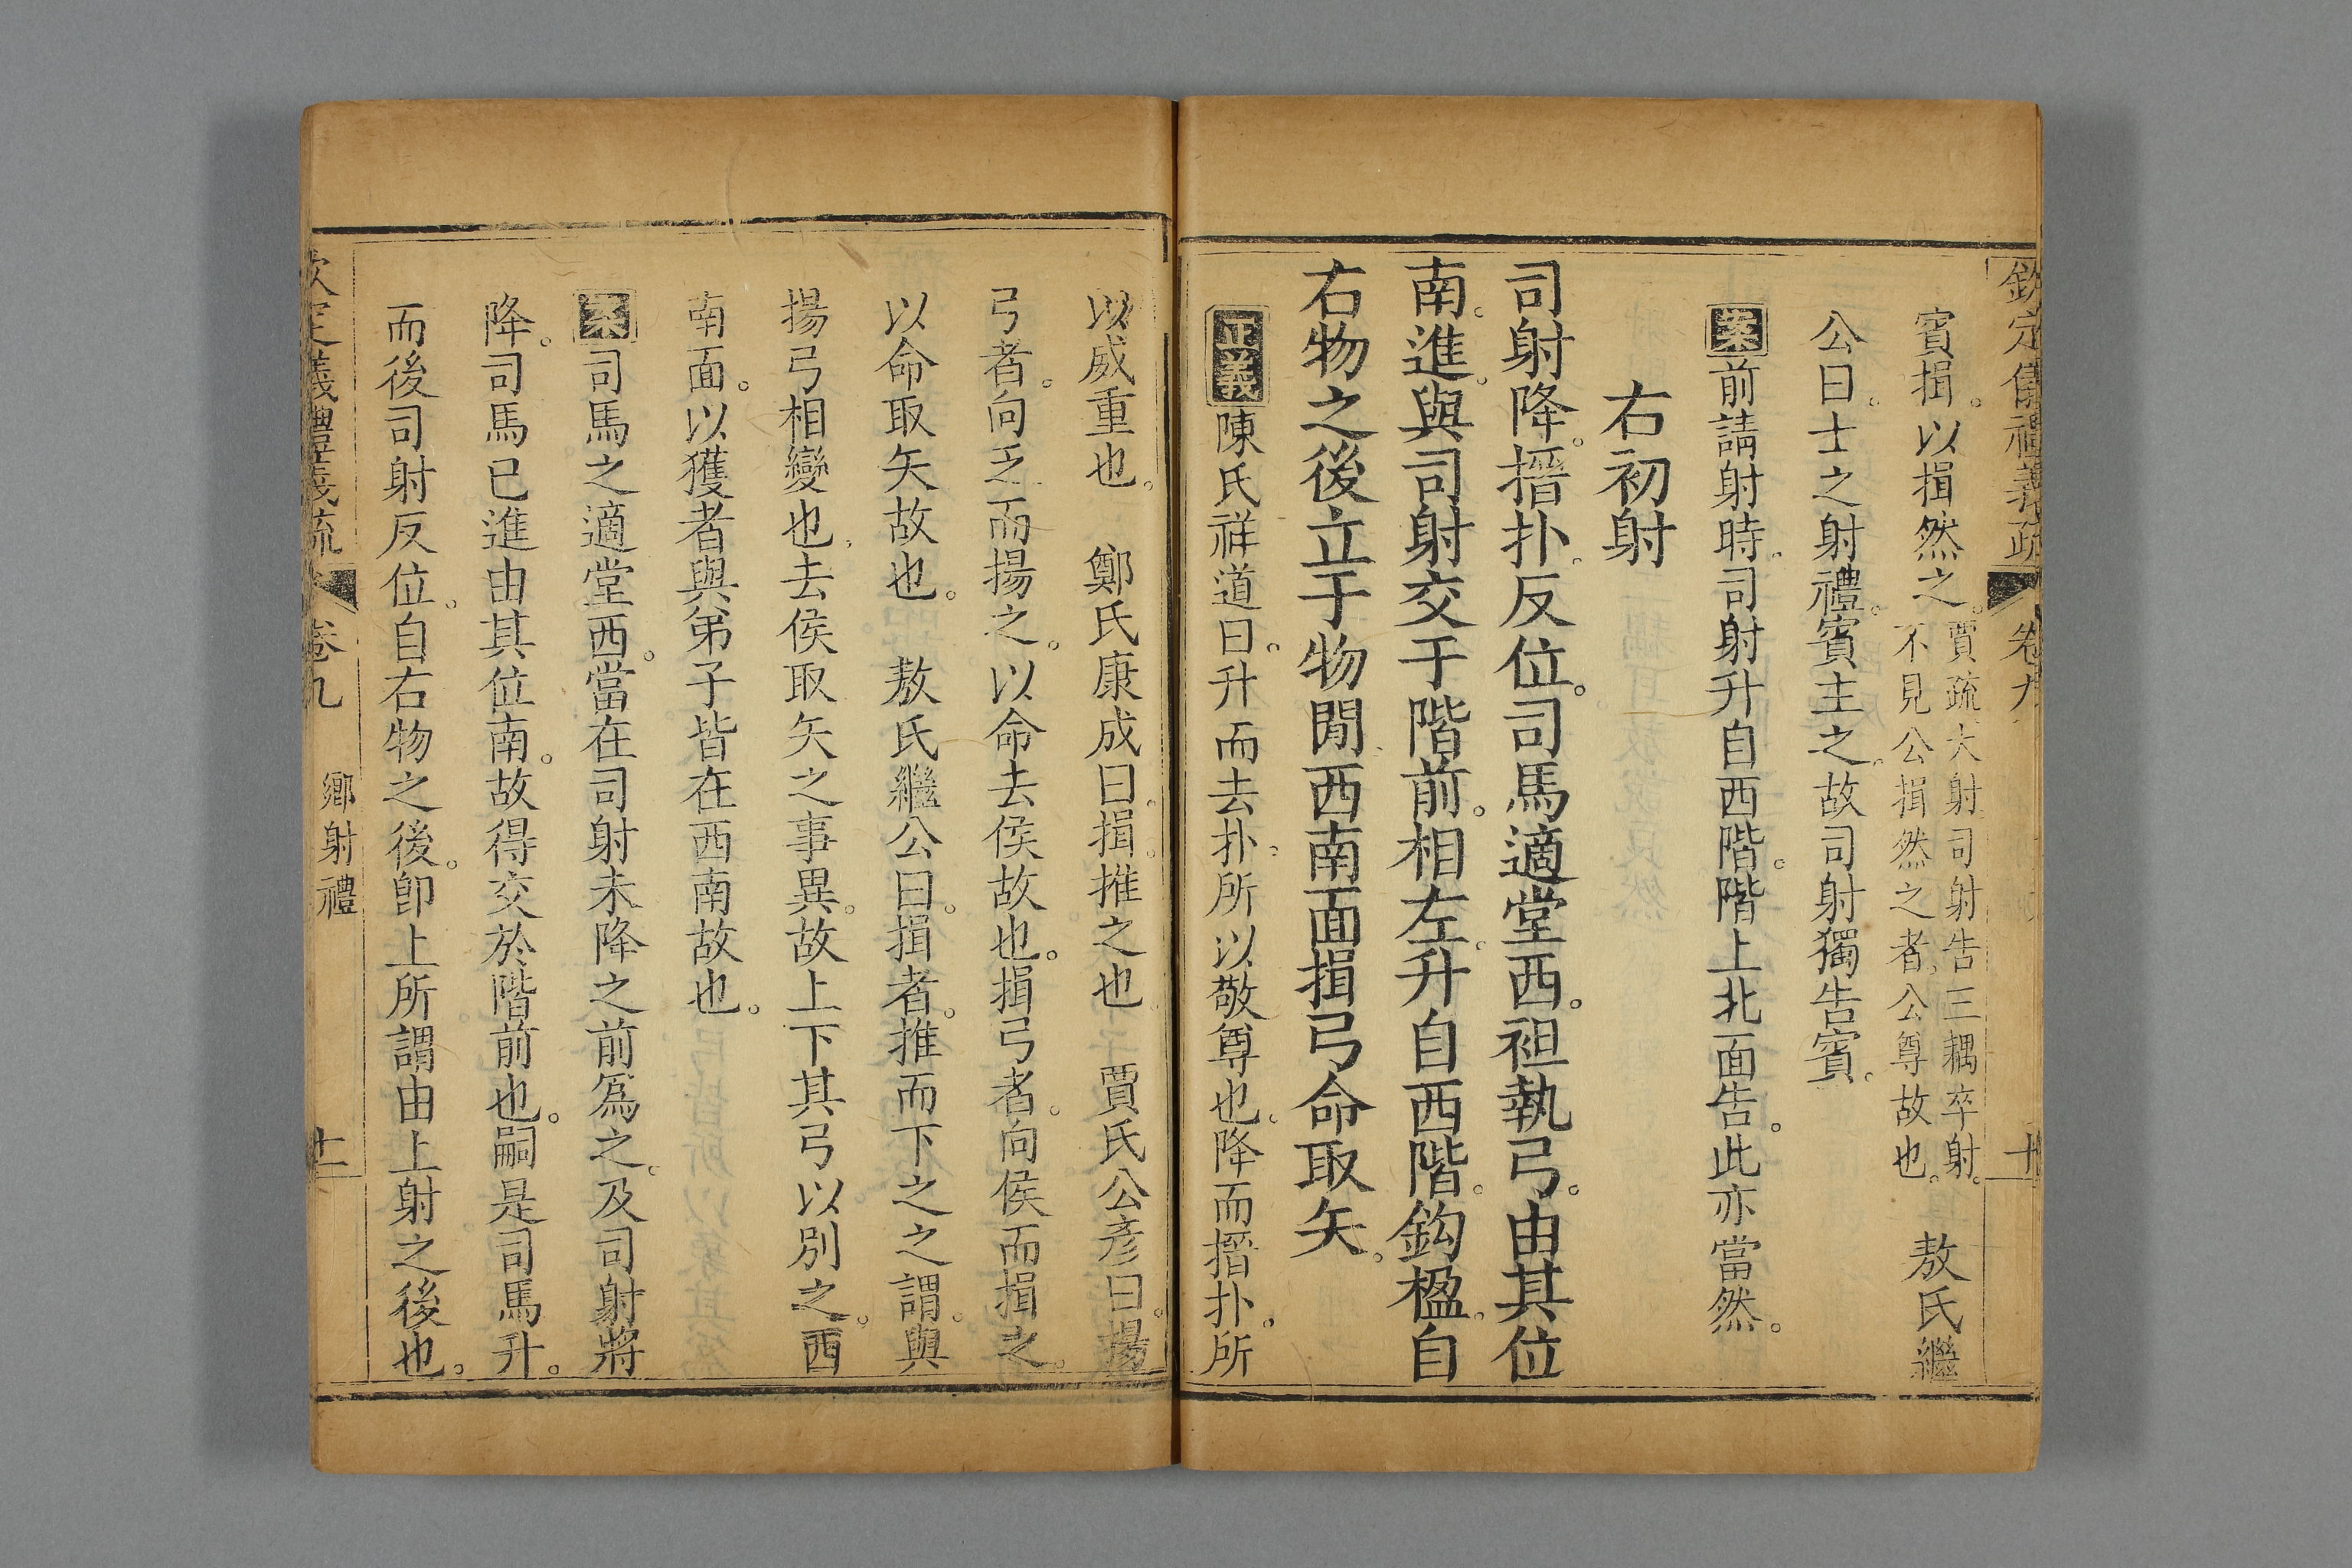 欽定儀禮義疏 卷九 十
賓揖。以揖然之。賈疏大射司射告三耦卒射。不見公揖然之者。公尊故也。 敖氏繼
公曰。士之射禮。賓主之。故司射獨告賓。
案前請射時。司射升自西階。階上北面告。此亦當然。
右初射
司射降。搢扑。反位。司馬適堂西。袒執弓。由其位
南。進。與司射交于階前。相左。升自西階。鈎楹。自
右物之後立于物閒。西南面揖弓命取矢。
正義陳氏祥道曰。升而去扑。所以敬尊也。降而搢扑。所
以威重也。 鄭氏康成曰。揖。推之也 賈氏公彦曰。揚
弓者。向乏而揚之。以命去侯故也。揖弓者。向侯而揖之。
以命取矢故也。 敖氏繼公曰。揖者。推而下之之謂。與
揚弓相變也。去侯取矢之事異。故上下其弓以別之。西
南面。以獲者與弟子皆在西南故也。
案司馬之適堂西。當在司射未降之前爲之。及司射將
降。司馬已進由其位南。故得交於階前也。嗣是司馬升。
而後司射反位。自右物之後。卽上所謂由上射之後也。
欽定儀禮義疏 卷九 鄉射禮 十一